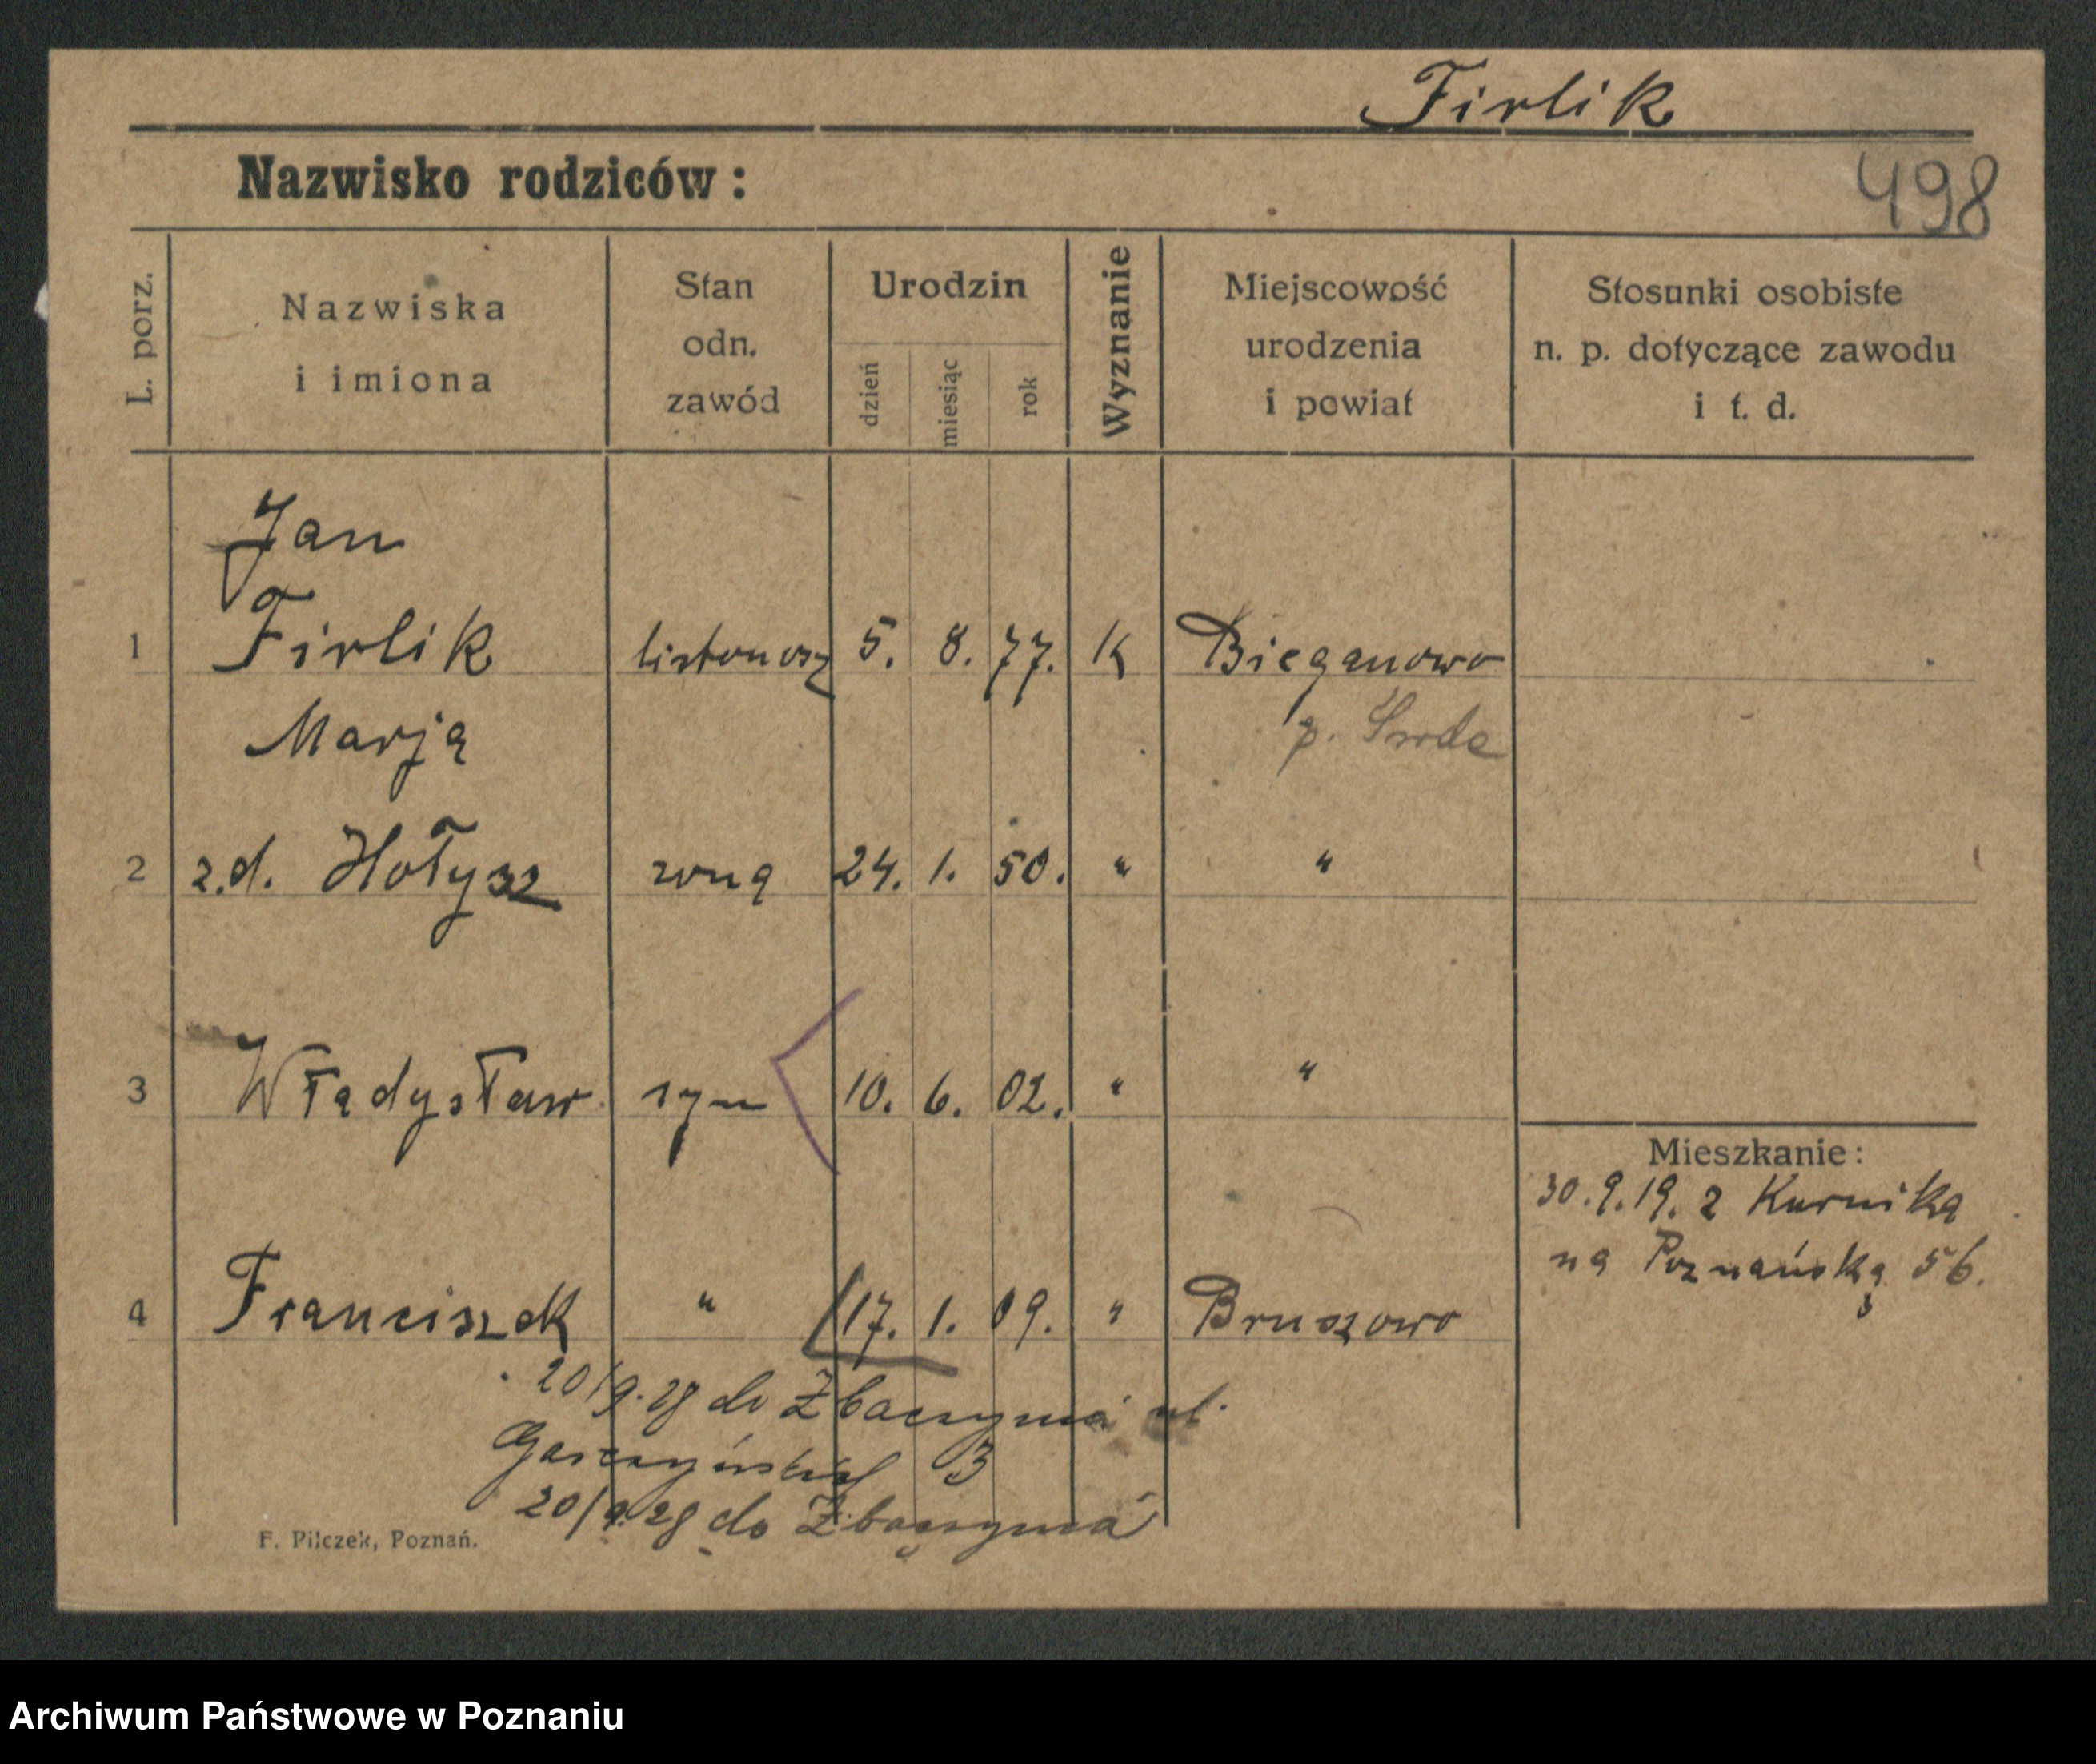 Firlik
Nazwisko rodziców:
498
L. porz.
Nazwiska
i imiona
Stan
odn.
zawód
Urodzin
dzień
miesiąc
rok
Wyznanie
Miejscowość
urodzenia
i powiat
Stosunki osobiste
n. p. dotyczące zawodu
i t. d.
Jan
1 Firlik listonosz 5. 8. 77. K Bieganowo
Marja p. Środa
2 z.d. Hołysz żona 24. 1. 50. " "
3 Władysław syn 10. 6. 02. " "
Mieszkanie:
30.9.19. z Kurnika
na Poznańską 56.
4 Franciszek " 17. 1. 09. " Bruszowo
20/9.28 do Zbąszynia ul.
Garczyńskich 3
20/9.28 do Zbąszynia
F. Pilczek, Poznań.
Archiwum Państwowe w Poznaniu